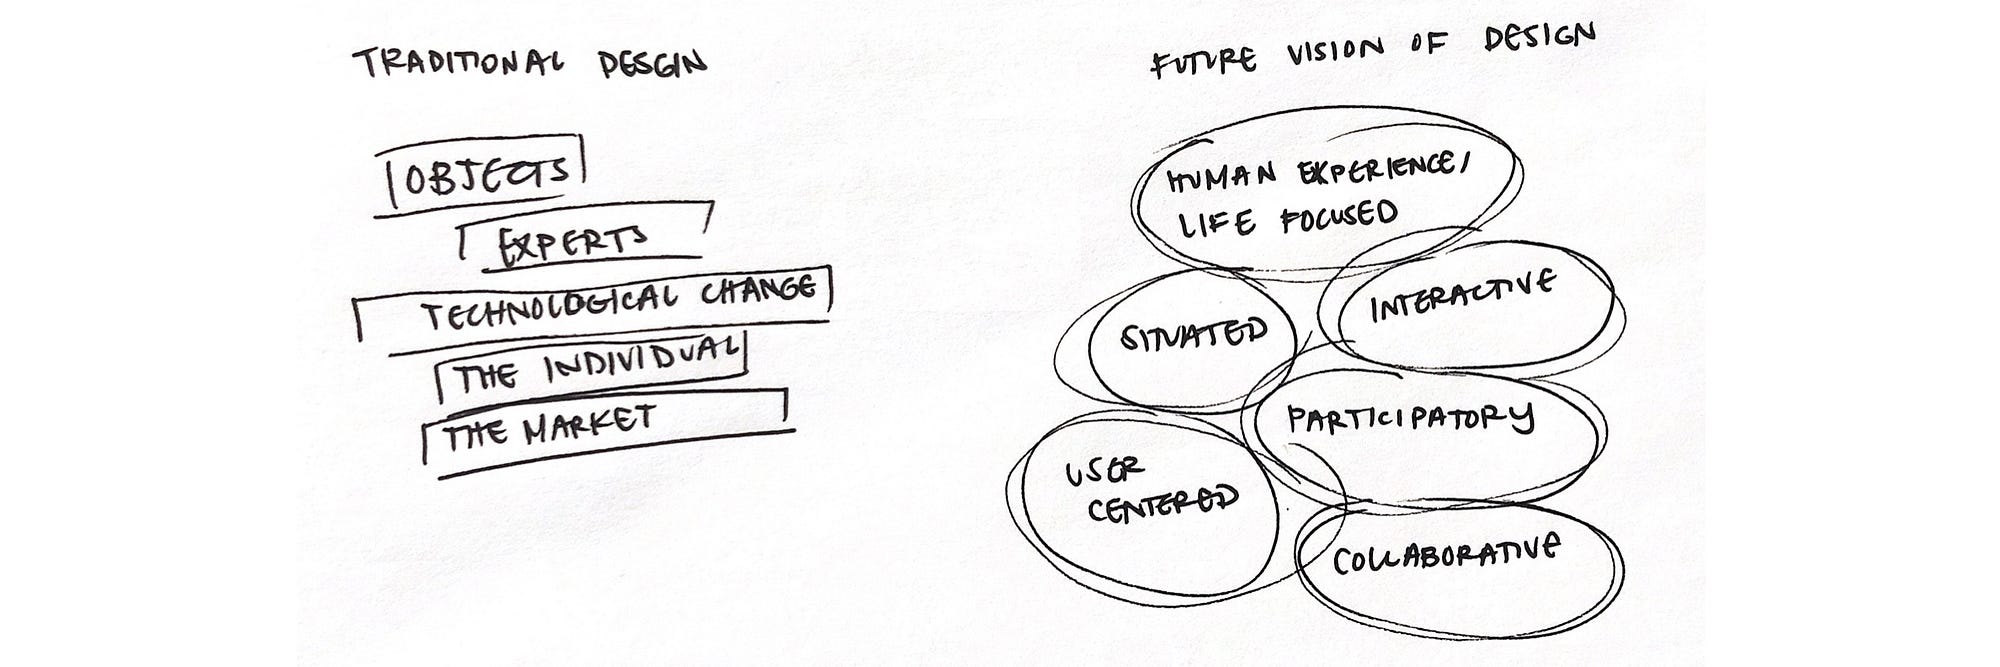 TRADITIONAL DESGIN
OBJECTS
EXPERTS
TECHNOLOGICAL CHANGE
THE INDIVIDUAL
THE MARKET
FUTURE VISION OF DESIGN
HUMAN EXPERIENCE/
LIFE FOCUSED
INTERACTIVE
SITUATED
PARTICIPATORY
USER
CENTERED
COLLABORATIVE